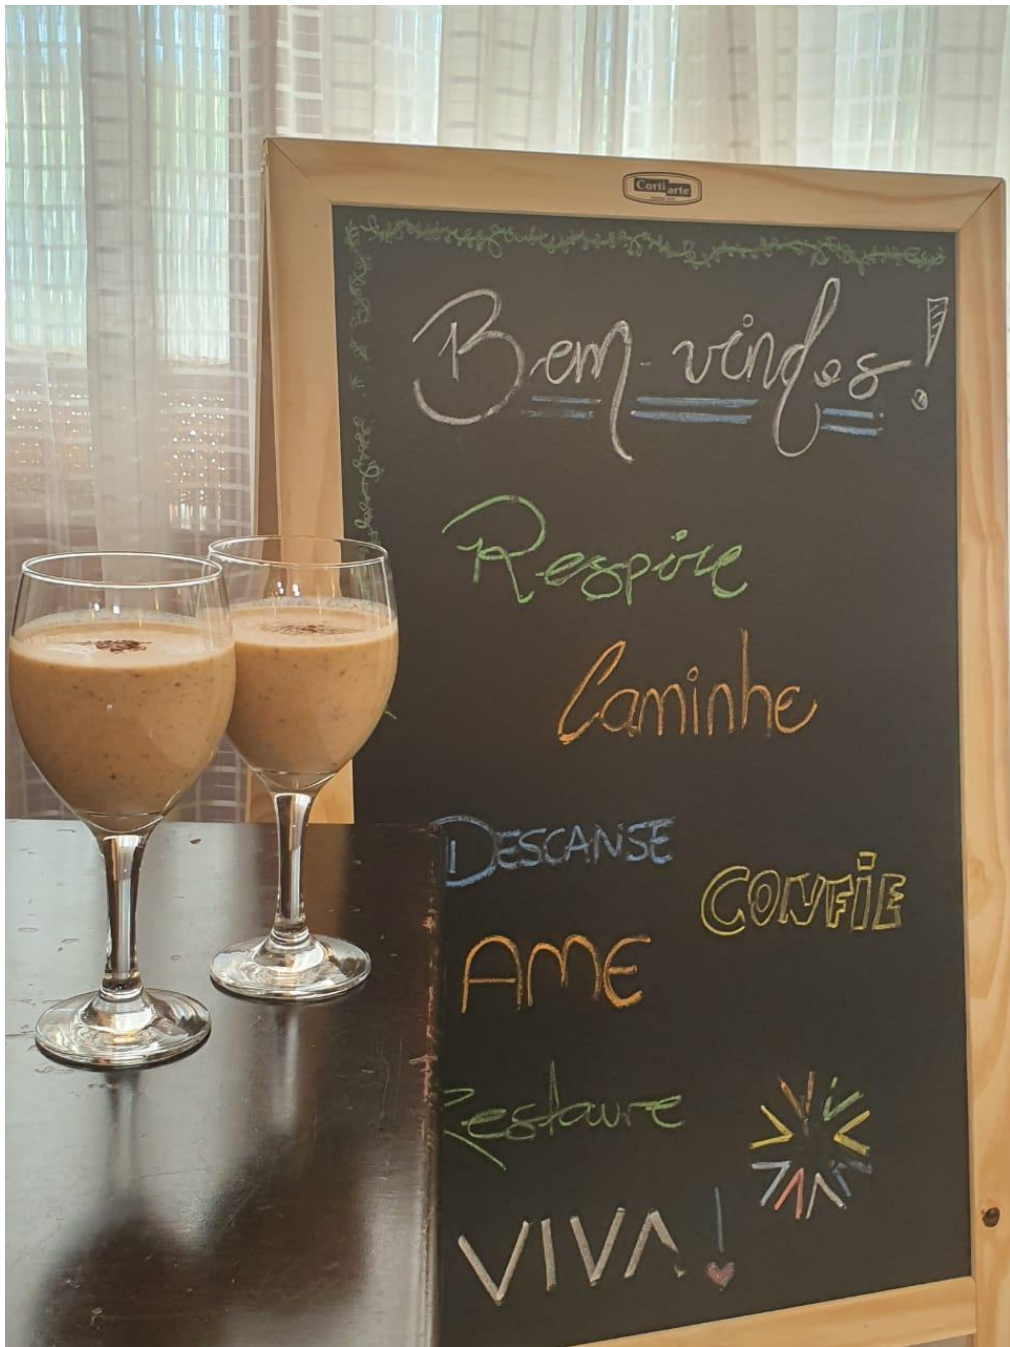 Corti arte
Bem-vindos!
Respire
Caminhe
DESCANSE
CONFiE
AME
Restaure
VIVA!